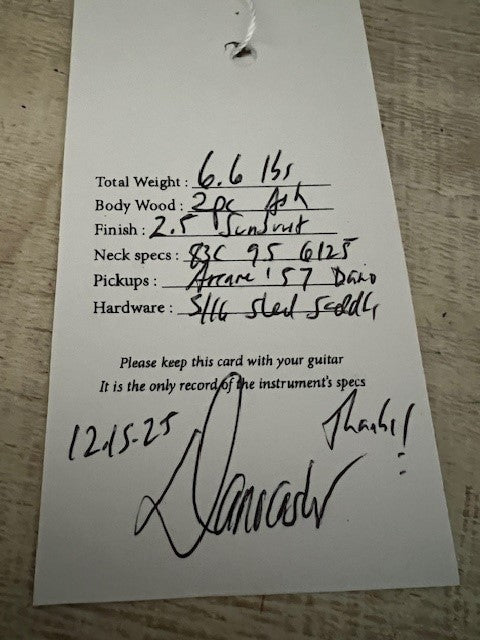 Total Weight : 6.6 lbs
Body Wood : 2pc Ash
Finish : 2.5 Sunburst
Neck specs : 83C 95 6125
Pickups : Arcane '57 Dano
Hardware : 5/16 steel saddles
Please keep this card with your guitar
It is the only record of the instrument's specs
12-15-25 Thanks!
Danocaster